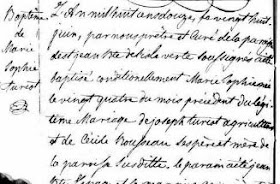 Baptême
de
Marie
Sophie
turcot
L'An mil huit cens douze, le vingt huit
juin, par nous prêtre et Curé de la paroisse
de st jean Bte de l'isle verte soussigné a été
baptisé conditionellement Marie Sophie née
le vingt quatre du mois précédent du légi
time Mariage de joseph turcot agriculteur
et de Cécile Rousseau ses père et mère de
la paroisse susditte. le parain a été jean
Bte